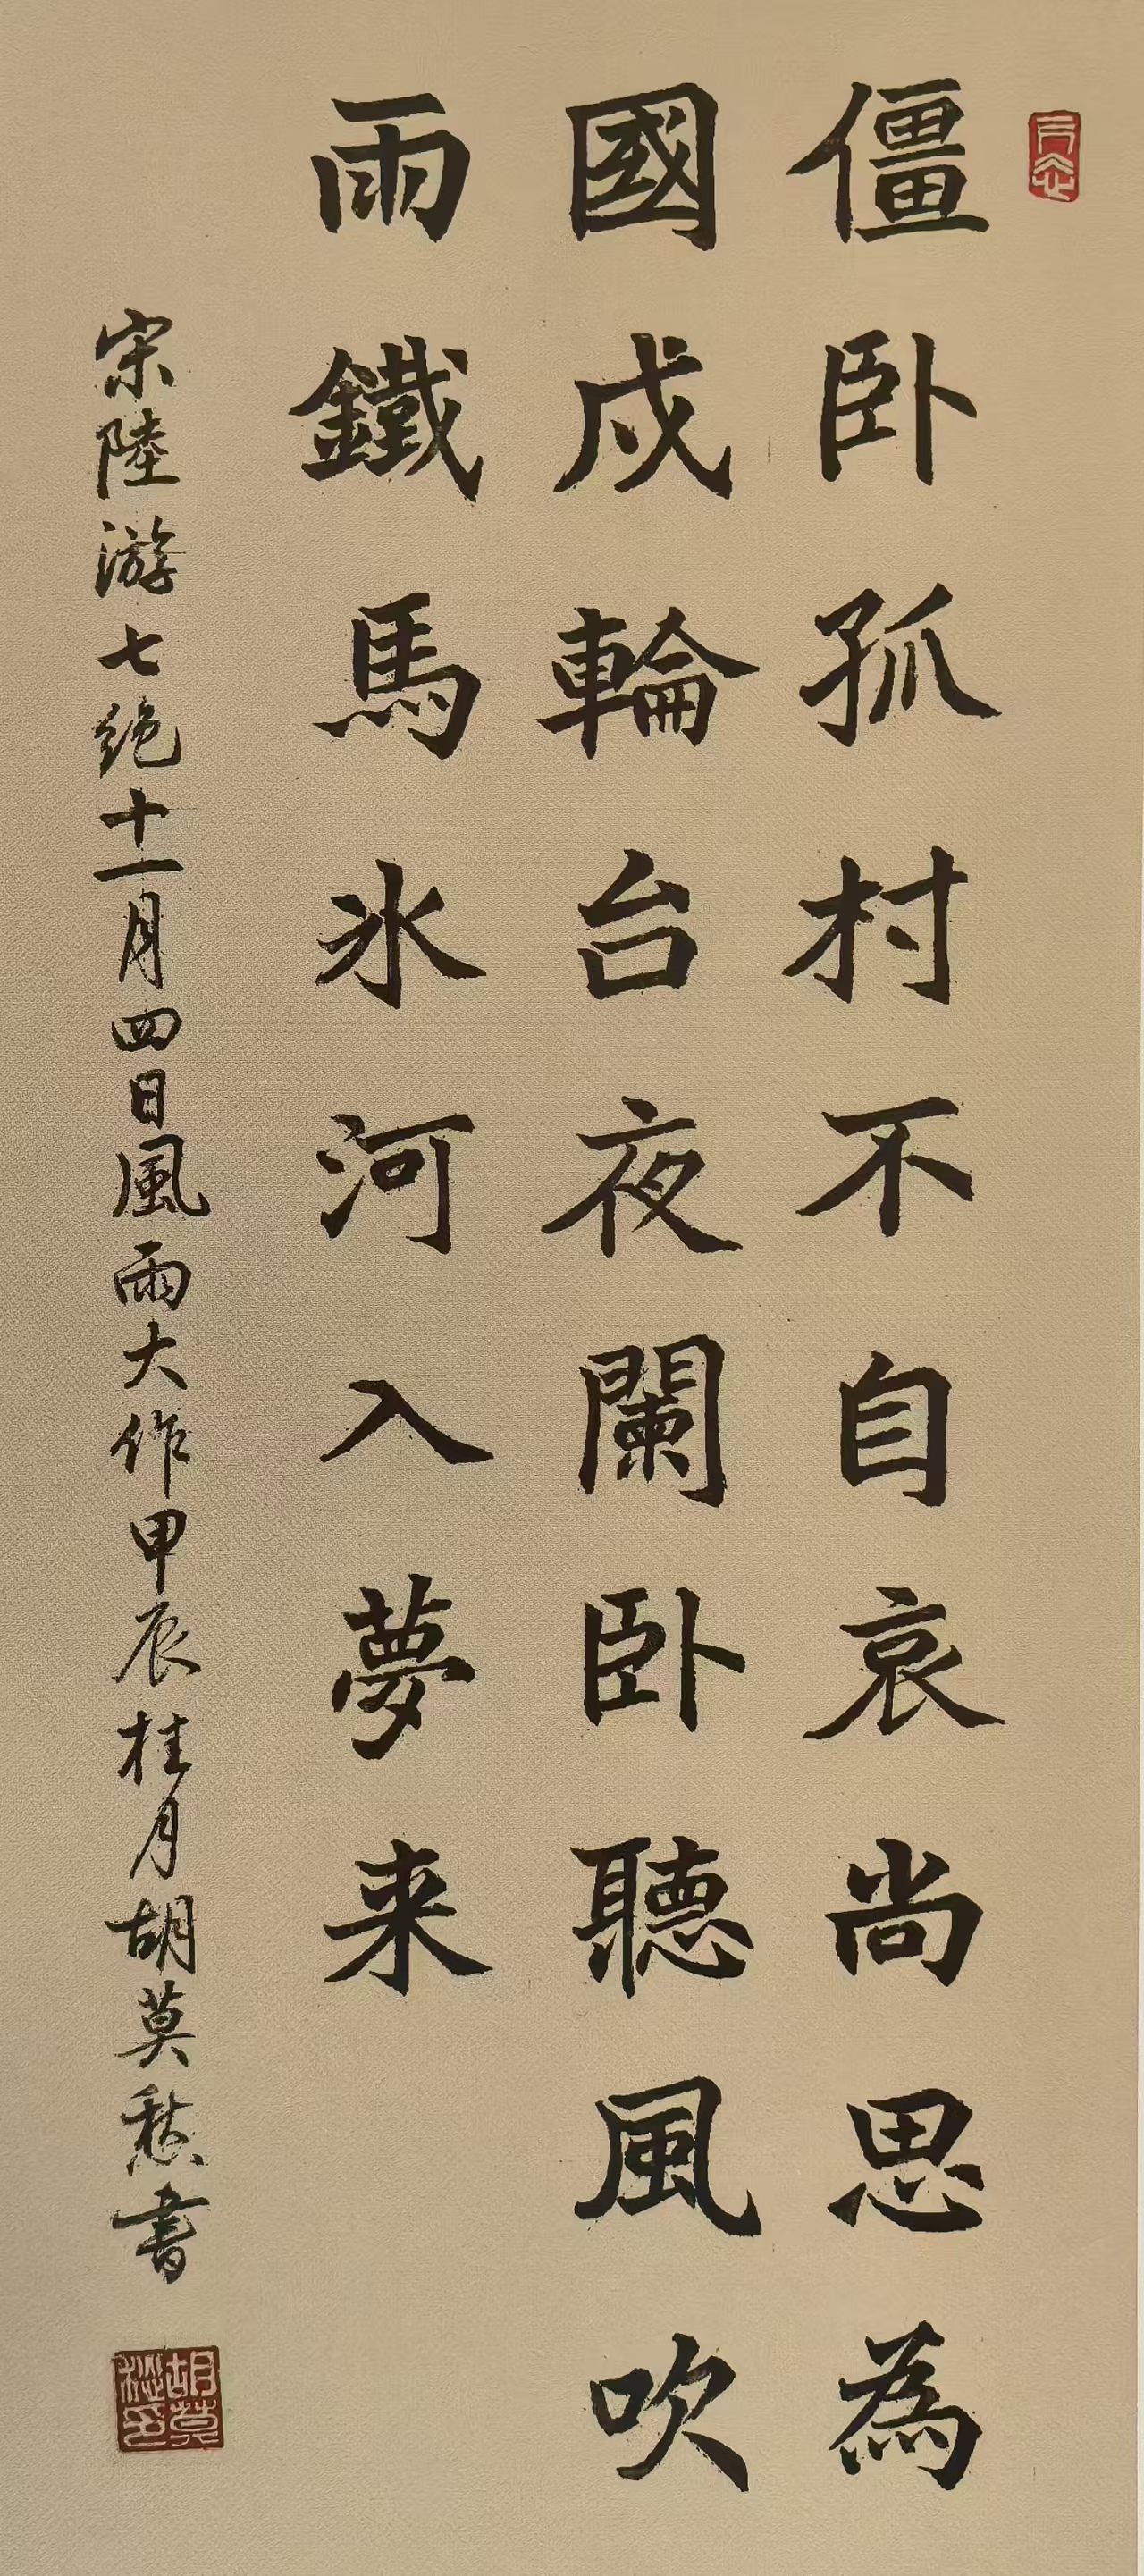 僵卧孤村不自哀尚思為
國戍輪台夜闌卧聽風吹
雨鐵馬氷河入夢来
宋陸游七绝十一月四日風雨大作甲辰桂月胡莫愁書
胡莫愁印